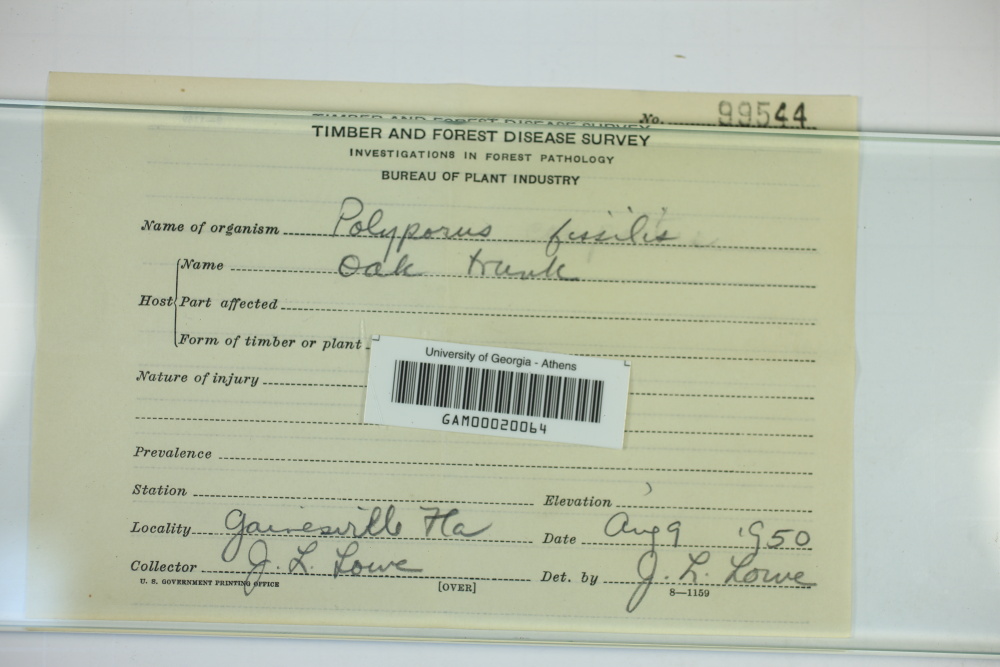 No. 99544
TIMBER AND FOREST DISEASE SURVEY
TIMBER AND FOREST DISEASE SURVEY
INVESTIGATIONS IN FOREST PATHOLOGY
BUREAU OF PLANT INDUSTRY
Name of organism Polyporus fissilis
Host
Name Oak trunk
Part affected
Form of timber or plant
University of Georgia - Athens
GAM00020064
Nature of injury
Prevalence
Station Elevation
Locality Gainesville Fla Date Aug 9 1950
Collector J. L. Lowe Det. by J. L. Lowe
U. S. GOVERNMENT PRINTING OFFICE [OVER] 8—1159